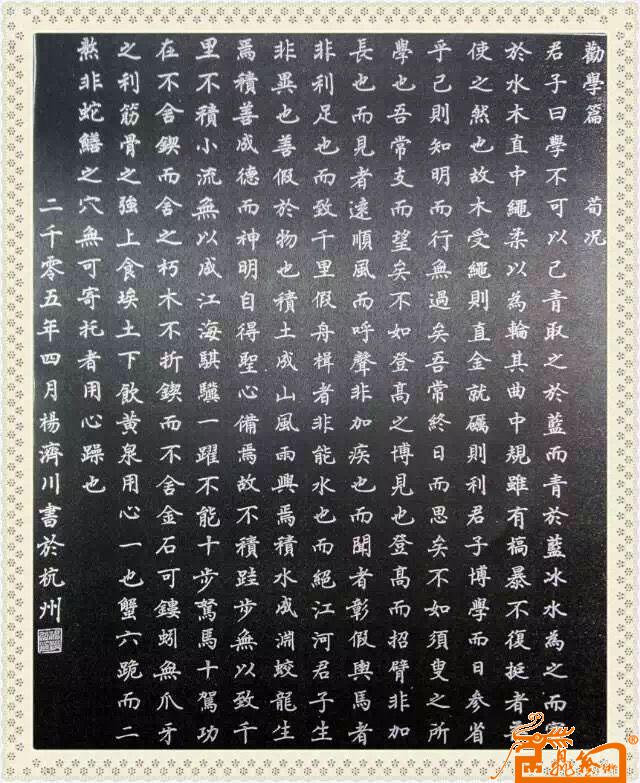 勸學篇 荀况
君子曰學不可以己青取之於藍而青於藍冰水為之而寒
於水木直中繩柔以為輪其曲中規雖有槁暴不復挺者
使之然也故木受繩則直金就礪則利君子博學而日參省
乎己則知明而行無過矣吾常終日而思矣不如須臾之所
學也吾常支而望矣不如登高之博見也登高而招臂非加
長也而見者遠順風而呼聲非加疾也而聞者彰假輿馬者
非利足也而致千里假舟楫者非能水也而絕江河君子生
非異也善假於物也積土成山風雨興焉積水成淵蛟龍生
焉積善成德而神明自得聖心備焉故不積跬步無以致千
里不積小流無以成江海騏驥一躍不能十步駑馬十駕功
在不舍鍥而舍之朽木不折鍥而不舍金石可鏤蚓無爪牙
之利筋骨之強上食埃土下飲黃泉用心一也蟹六跪而二
熬非蛇鱔之穴無可寄托者用心躁也
二千零五年四月楊濟川書於杭州